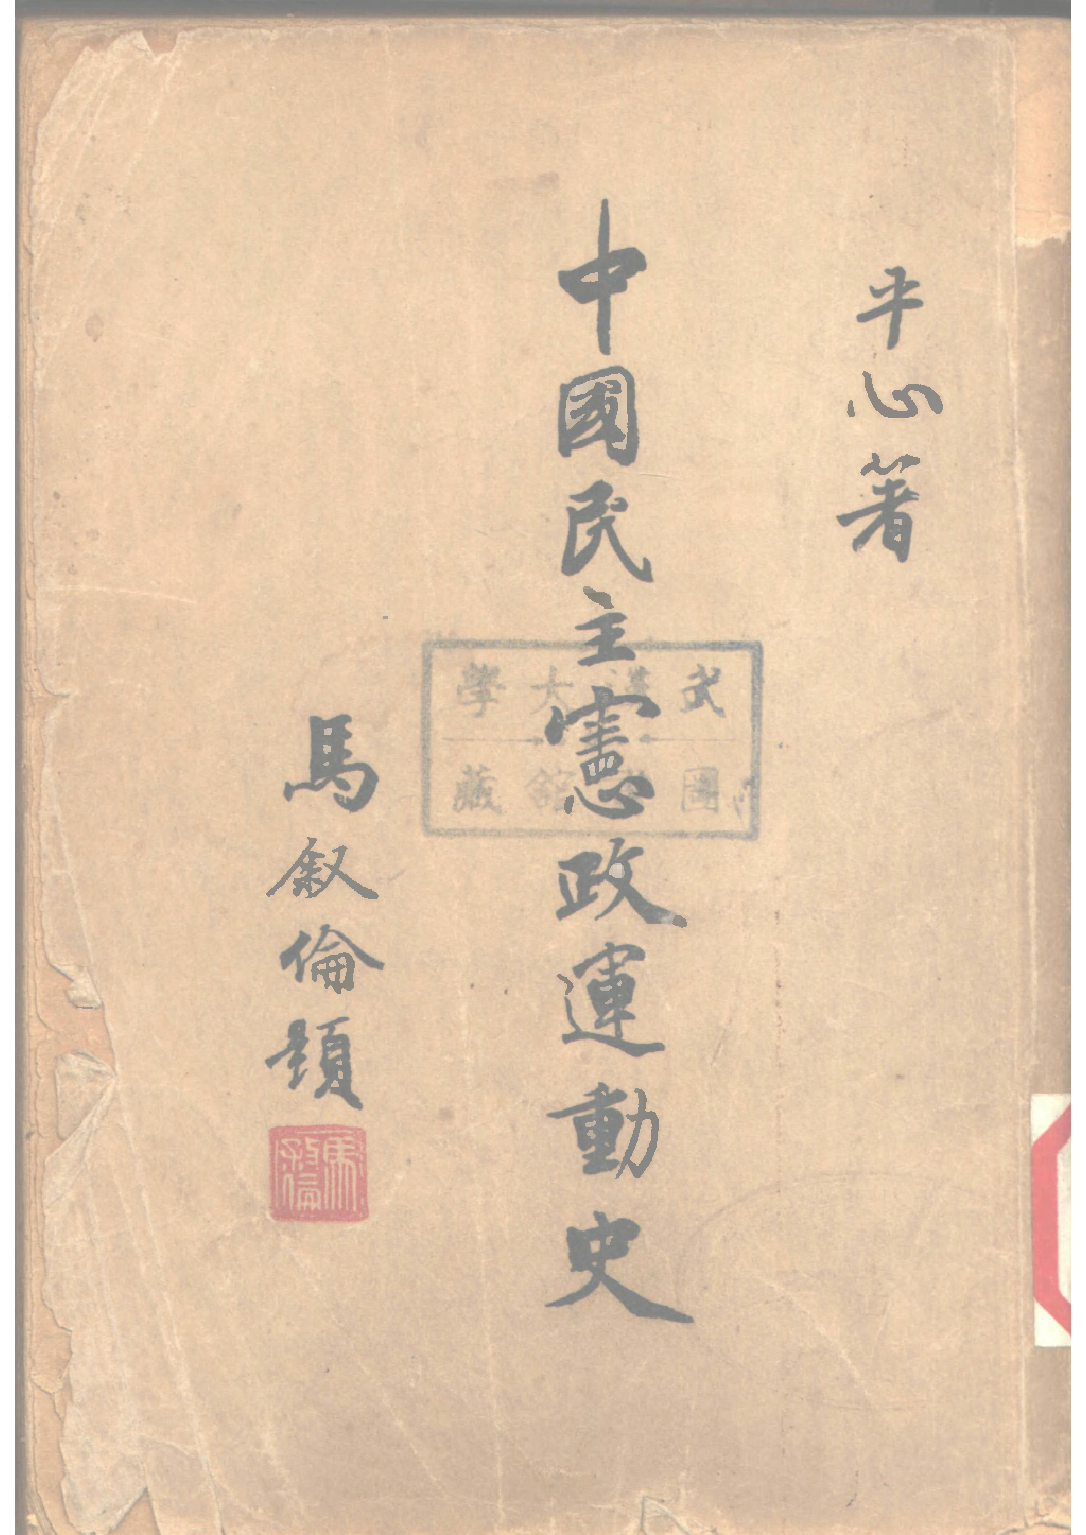 平心著
中國民主憲政運動史
武漢大學
圖書館藏
馬叙倫題
馬叙倫